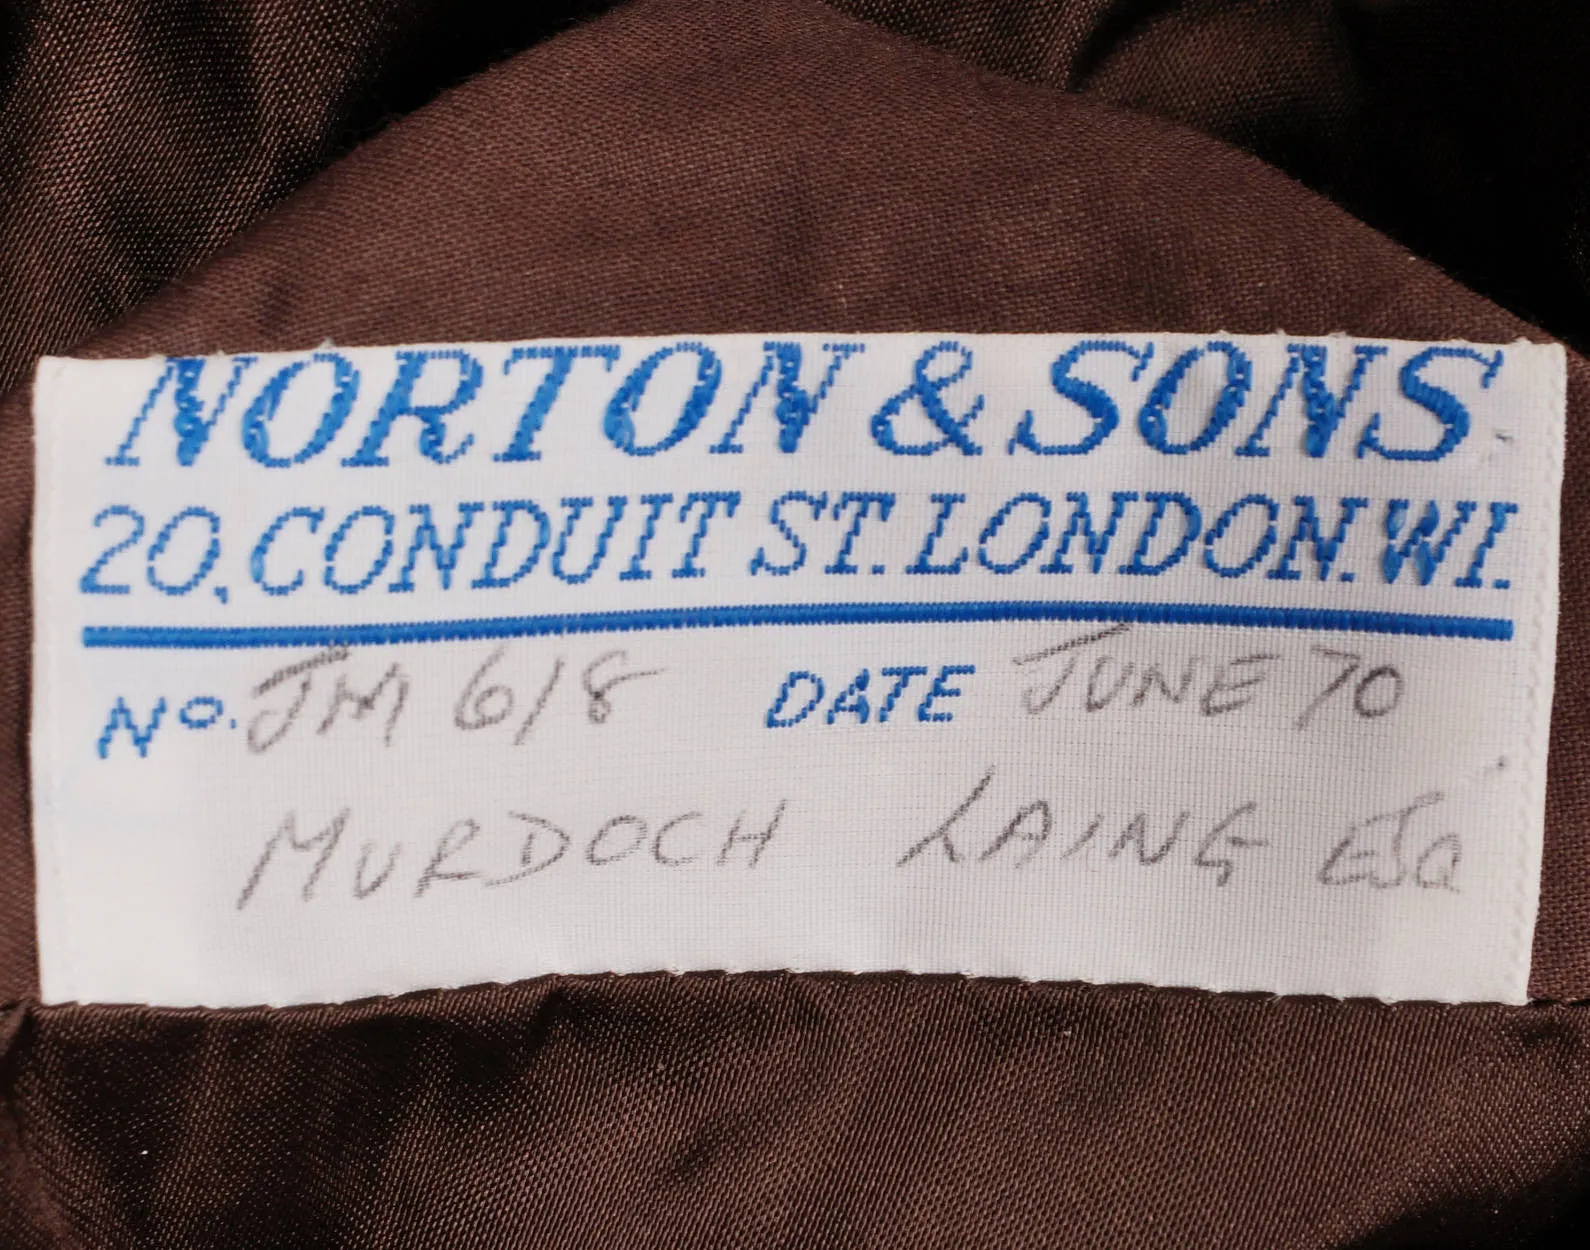 NORTON & SONS
20, CONDUIT ST. LONDON. W1.
No. JM 618 DATE JUNE 70
MURDOCH LAING ESQ